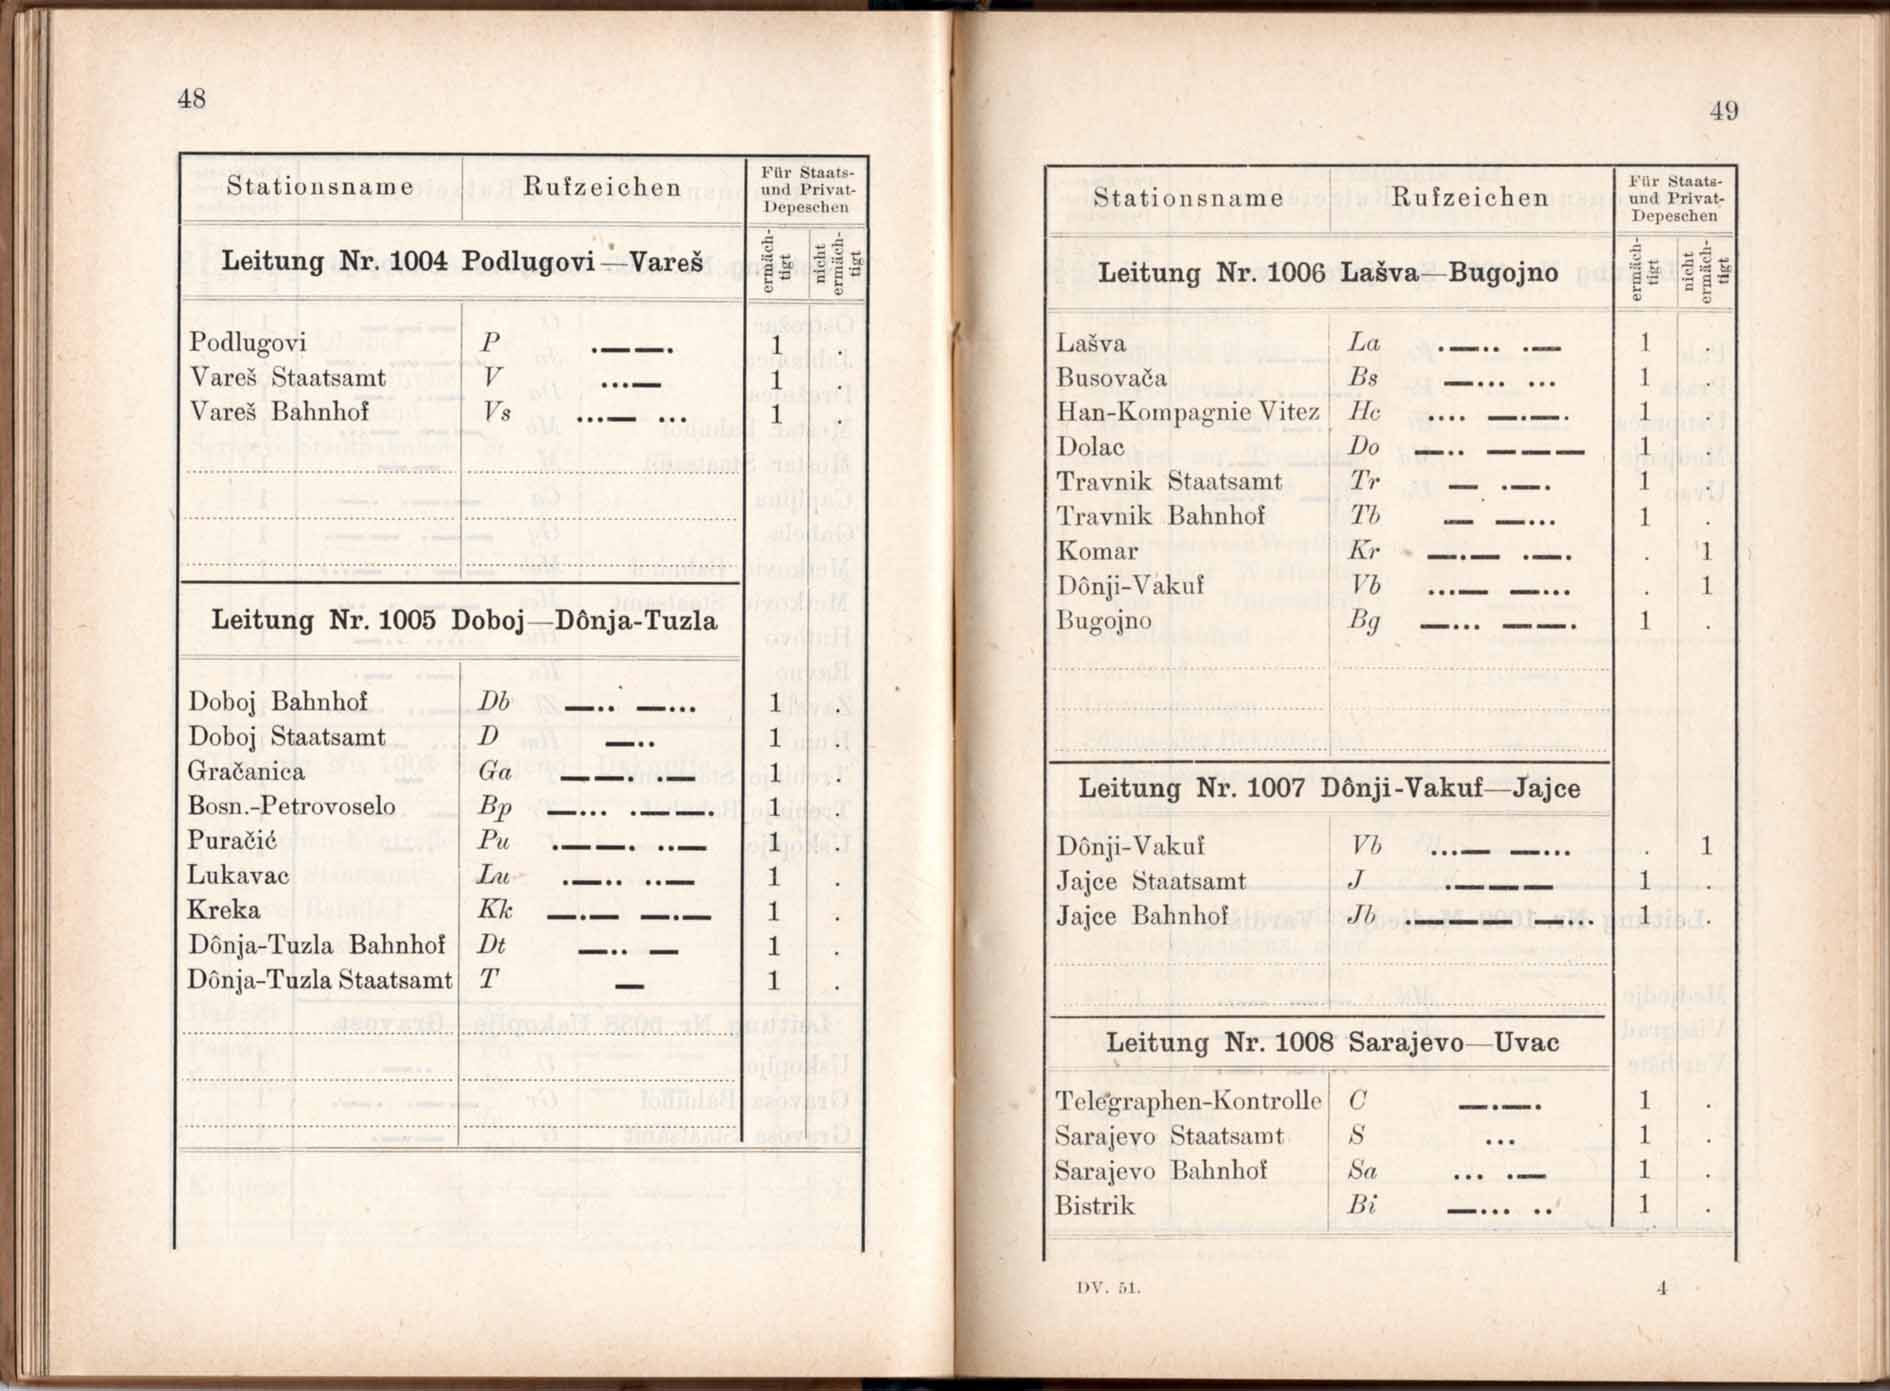 48
Stationsname Rufzeichen Für Staats- und Privat- Depeschen
Leitung Nr. 1004 Podlugovi—Vareš ermäch- tigt nicht ermäch- tigt
Podlugovi P .——. 1 .
Vareš Staatsamt V ...— 1 .
Vareš Bahnhof Vs ...— ... 1 .
Leitung Nr. 1005 Doboj—Dônja-Tuzla
Doboj Bahnhof Db —.. —... 1 .
Doboj Staatsamt D —.. 1 .
Gračanica Ga ——. .— 1 .
Bosn.-Petrovoselo Bp —... .——. 1 .
Puračić Pu .——. ..— 1 .
Lukavac Lu .—.. ..— 1 .
Kreka Kk —.— —.— 1 .
Dônja-Tuzla Bahnhof Dt —.. — 1 .
Dônja-Tuzla Staatsamt T — 1 .
49
Stationsname Rufzeichen Für Staats- und Privat- Depeschen
Leitung Nr. 1006 Lašva—Bugojno ermäch- tigt nicht ermäch- tigt
Lašva La .—.. .— 1 .
Busovača Bs —... ... 1 .
Han-Kompagnie Vitez Hc .... —.—. 1 .
Dolac Do —.. ——— 1 .
Travnik Staatsamt Tr — .—. 1 .
Travnik Bahnhof Tb — —... 1 .
Komar Kr —.— .—. . 1
Dônji-Vakuf Vb ...— —... . 1
Bugojno Bg —... ——. 1 .
Leitung Nr. 1007 Dônji-Vakuf—Jajce
Dônji-Vakuf Vb ...— —... . 1
Jajce Staatsamt J .——— 1 .
Jajce Bahnhof Jb .——— —... 1 .
Leitung Nr. 1008 Sarajevo—Uvac
Telegraphen-Kontrolle C —.—. 1 .
Sarajevo Staatsamt S ... 1 .
Sarajevo Bahnhof Sa ... .— 1 .
Bistrik Bi —... .. 1 .
DV. 51. 4